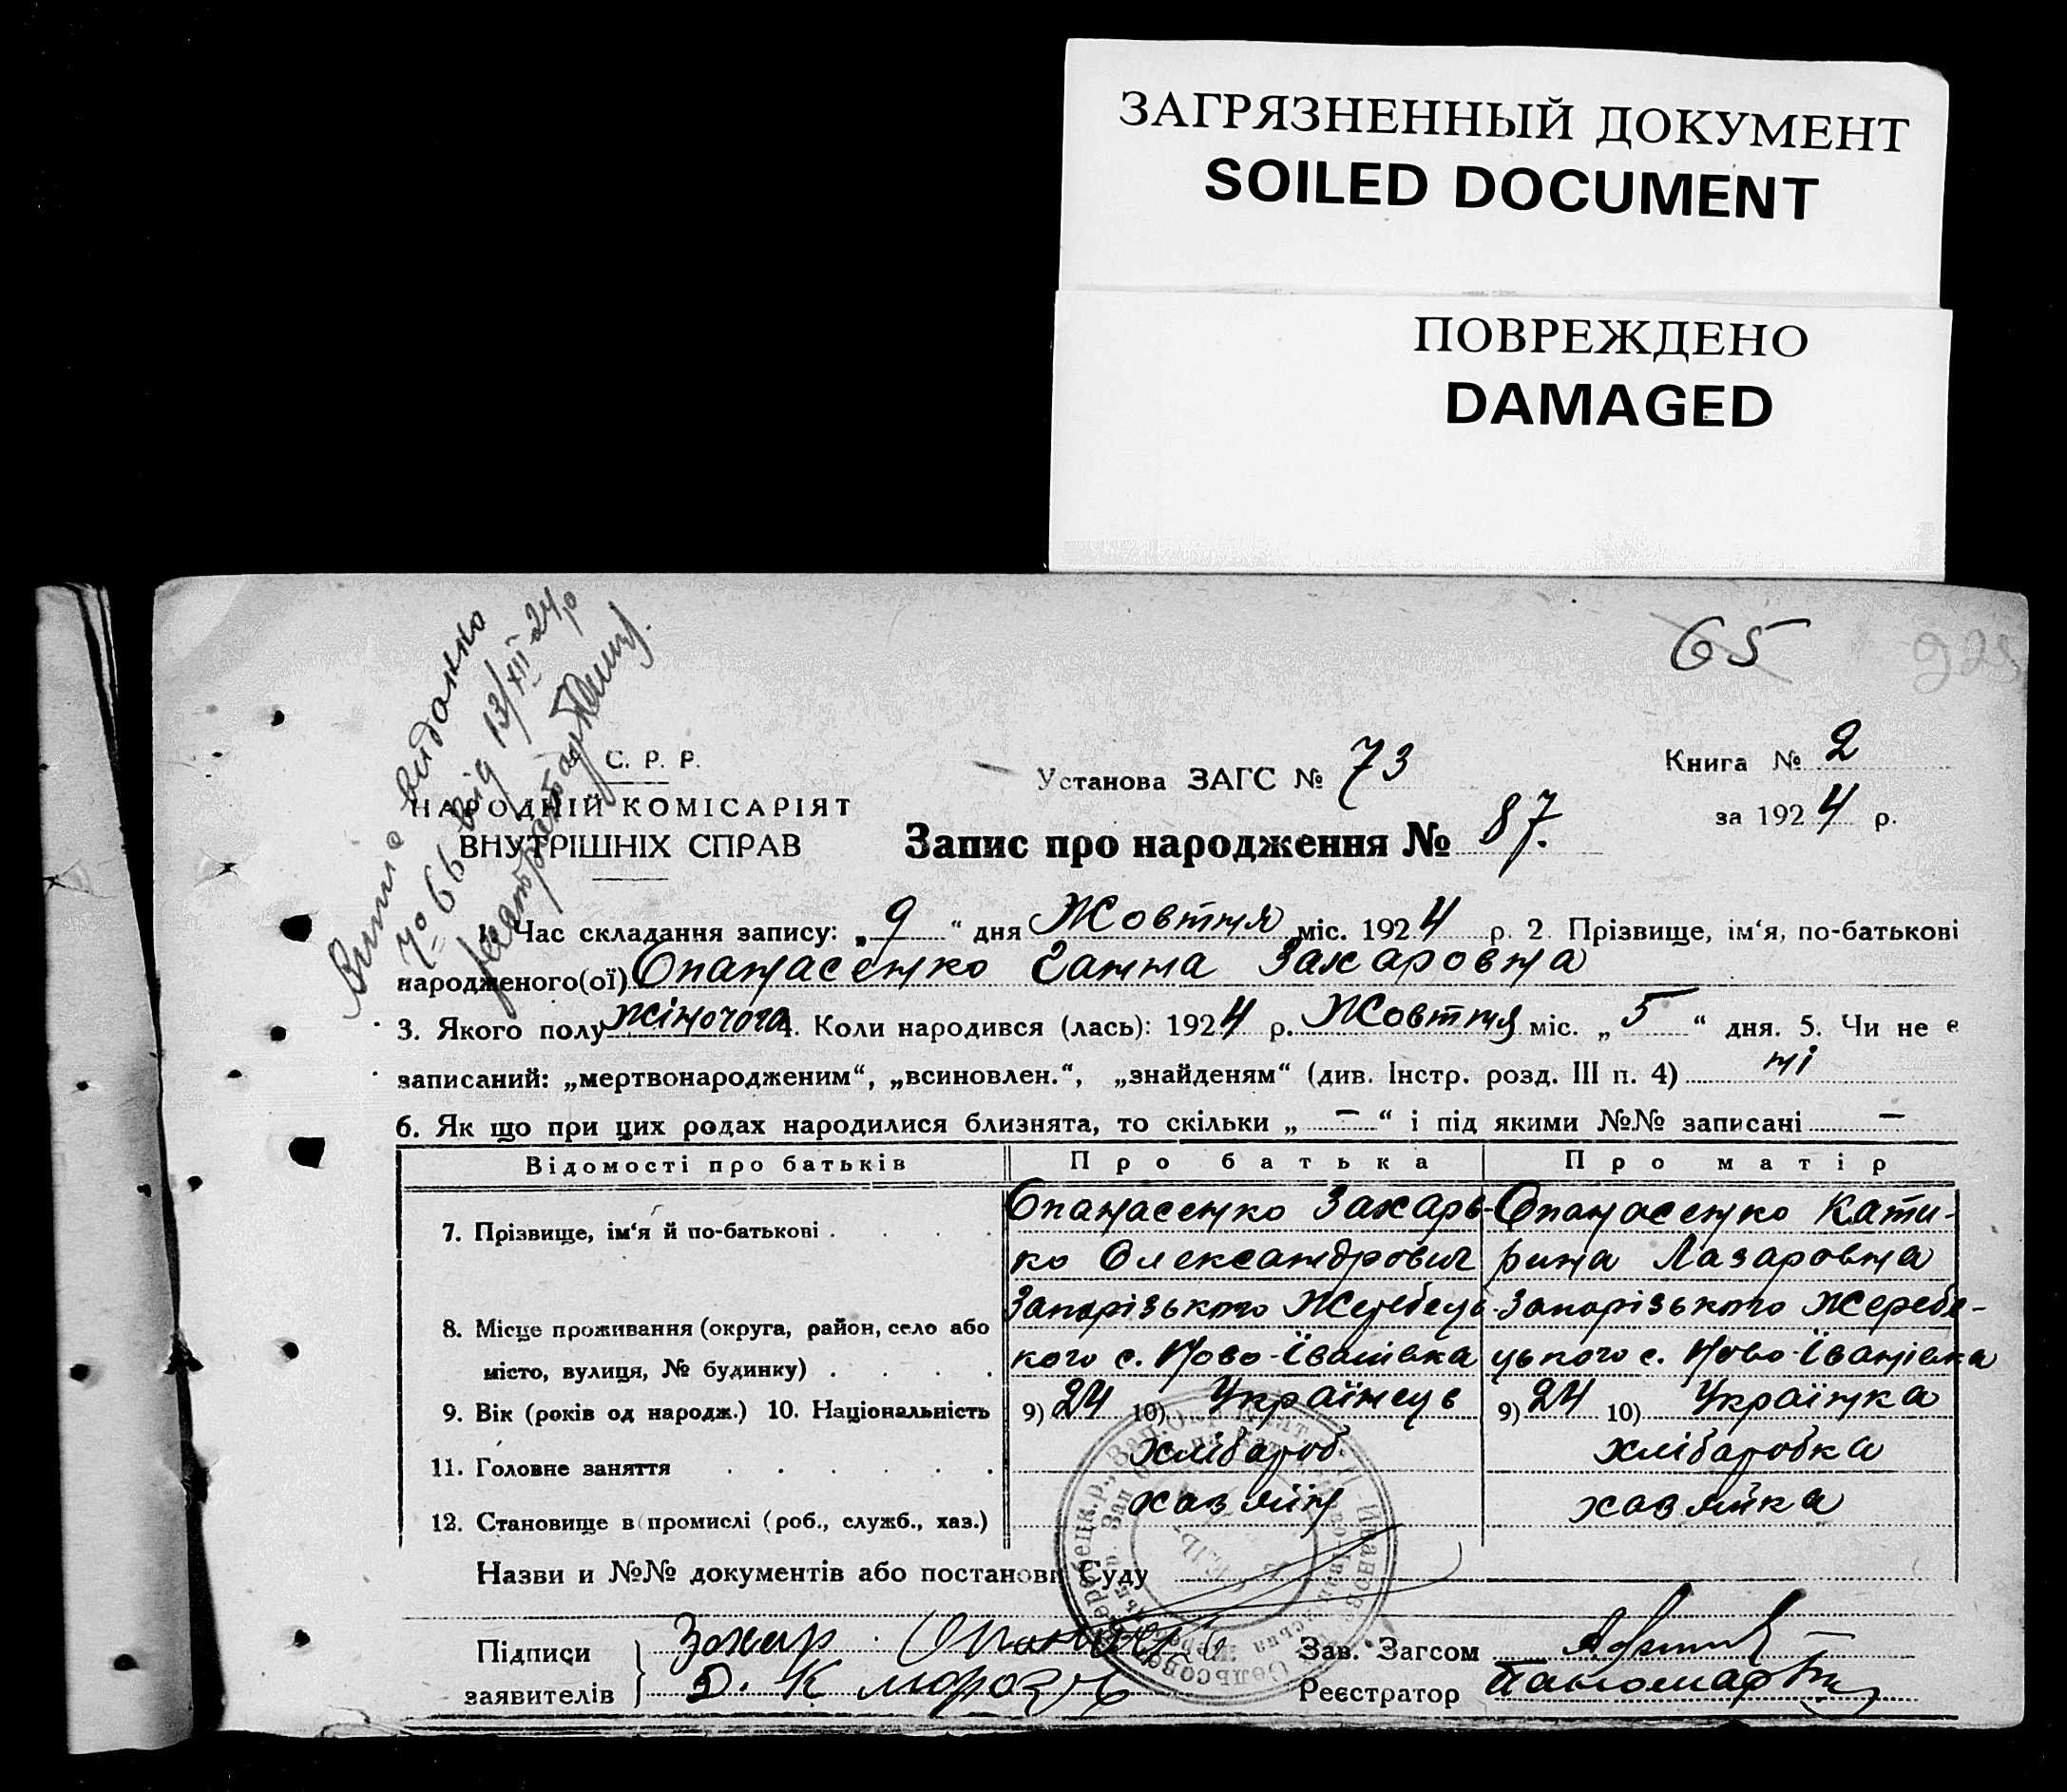 ЗАГРЯЗНЕННЫЙ ДОКУМЕНТ
SOILED DOCUMENT
ПОВРЕЖДЕНО
DAMAGED
65
Випис виданно
№ 66 від 13/XII-24р
С. Р. Р.
НАРОДНІЙ КОМІСАРІЯТ
ВНУТРІШНІХ СПРАВ
Установа ЗАГС № 73
Книга № 2
за 1924 р.
Запис про народження № 87.
1. Час складання запису: „9“ дня Жовтня міс. 1924 р. 2. Прізвище, ім‘я, по-батькові
народженого(ої) Опанасенко Ганна Захаровна
3. Якого полу жіночога 4. Коли народився (лась): 1924 р. Жовтня міс. „5“ дня. 5. Чи не є
записаний: „мертвонародженим“, „всиновлен.“, „знайденям“ (див. Інстр. розд. III п. 4) ні
6. Як що при цих родах народилися близнята, то скільки „ — “ і під якими №№ записані —
Відомості про батьків Про батька Про матір
7. Прізвище, ім‘я й по-батькові . Опанасенко Захарь- Опанасенко Кати-
ко Олександрович рина Лазаровна
8. Місце проживання (округа, район, село або Запорізького Жеребець- Запорізького Жеребе-
місто, вулиця, № будинку) . кого с. Ново-Їванівка цького с. Ново-Їванівка
9. Вік (років од народж.) 10. Національність 9) 24 10) Українець 9) 24 10) Українка
11. Головне заняття хлібароб хлібаробка
12. Становище в промислі (роб., служб., хаз.) хазяїн хазяйка
Назви и №№ документів або постанови Суду
Підписи Захар Зав. Загсом
заявителів Д. К Мороз Реєстратор